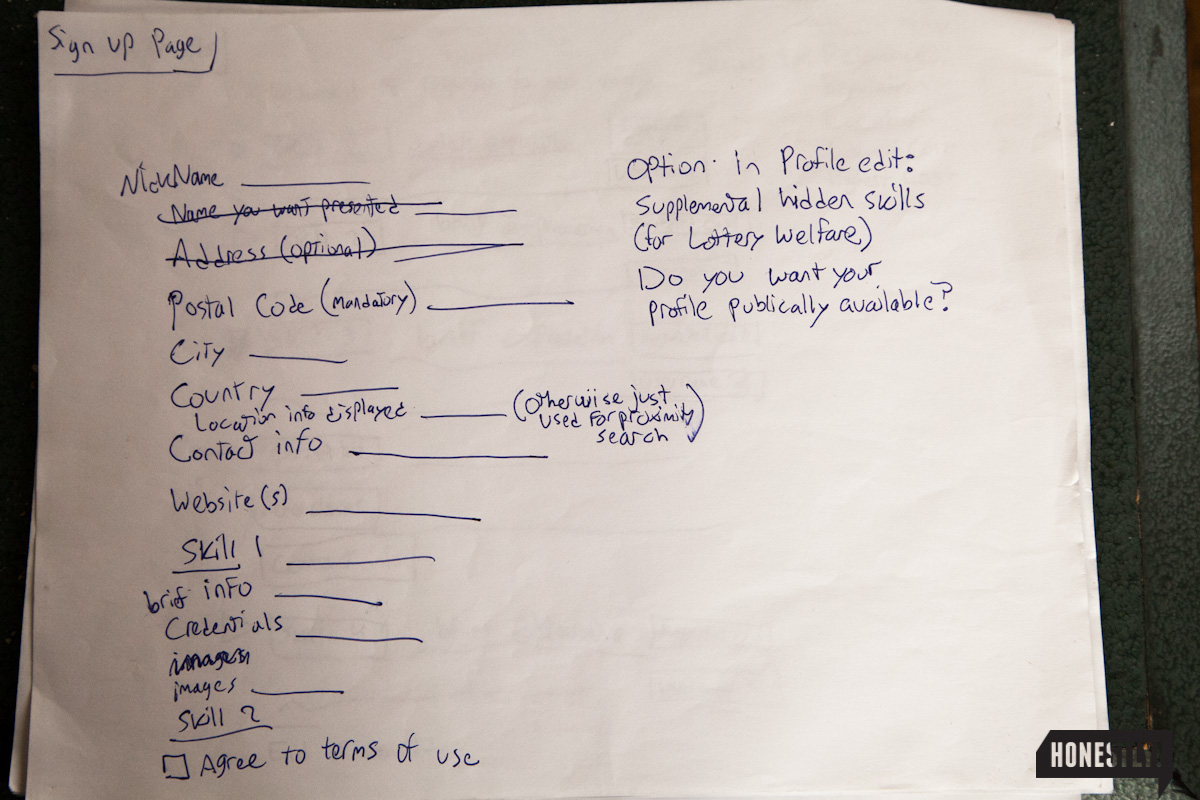 Sign up Page
NickName
Name you want presented
Address (optional)
Postal Code (mandatory)
City
Country
Location info displayed (Otherwiise just
used for proximity
search)
Contact info
Website(s)
Skill 1
brief info
Credentials
images
images
Skill 2
Agree to terms of use
Option in Profile edit:
Supplemental hidden skills
(for Lottery Welfare)
Do you want your
profile publically available?
HONESTLY!